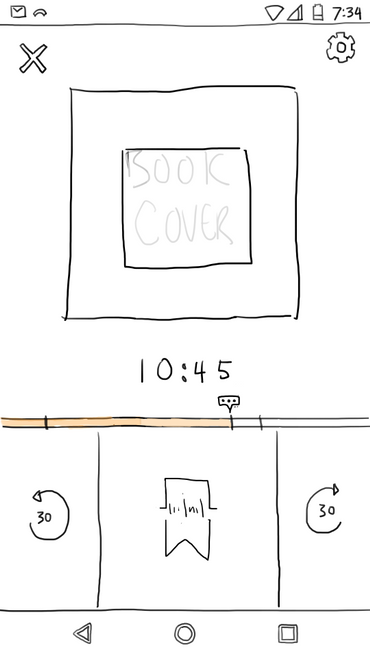 7:34
BOOK
COVER
10:45
30
30